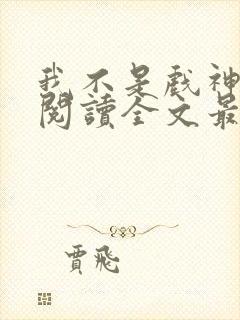 我不是戲神
閱讀全文最
賈飛